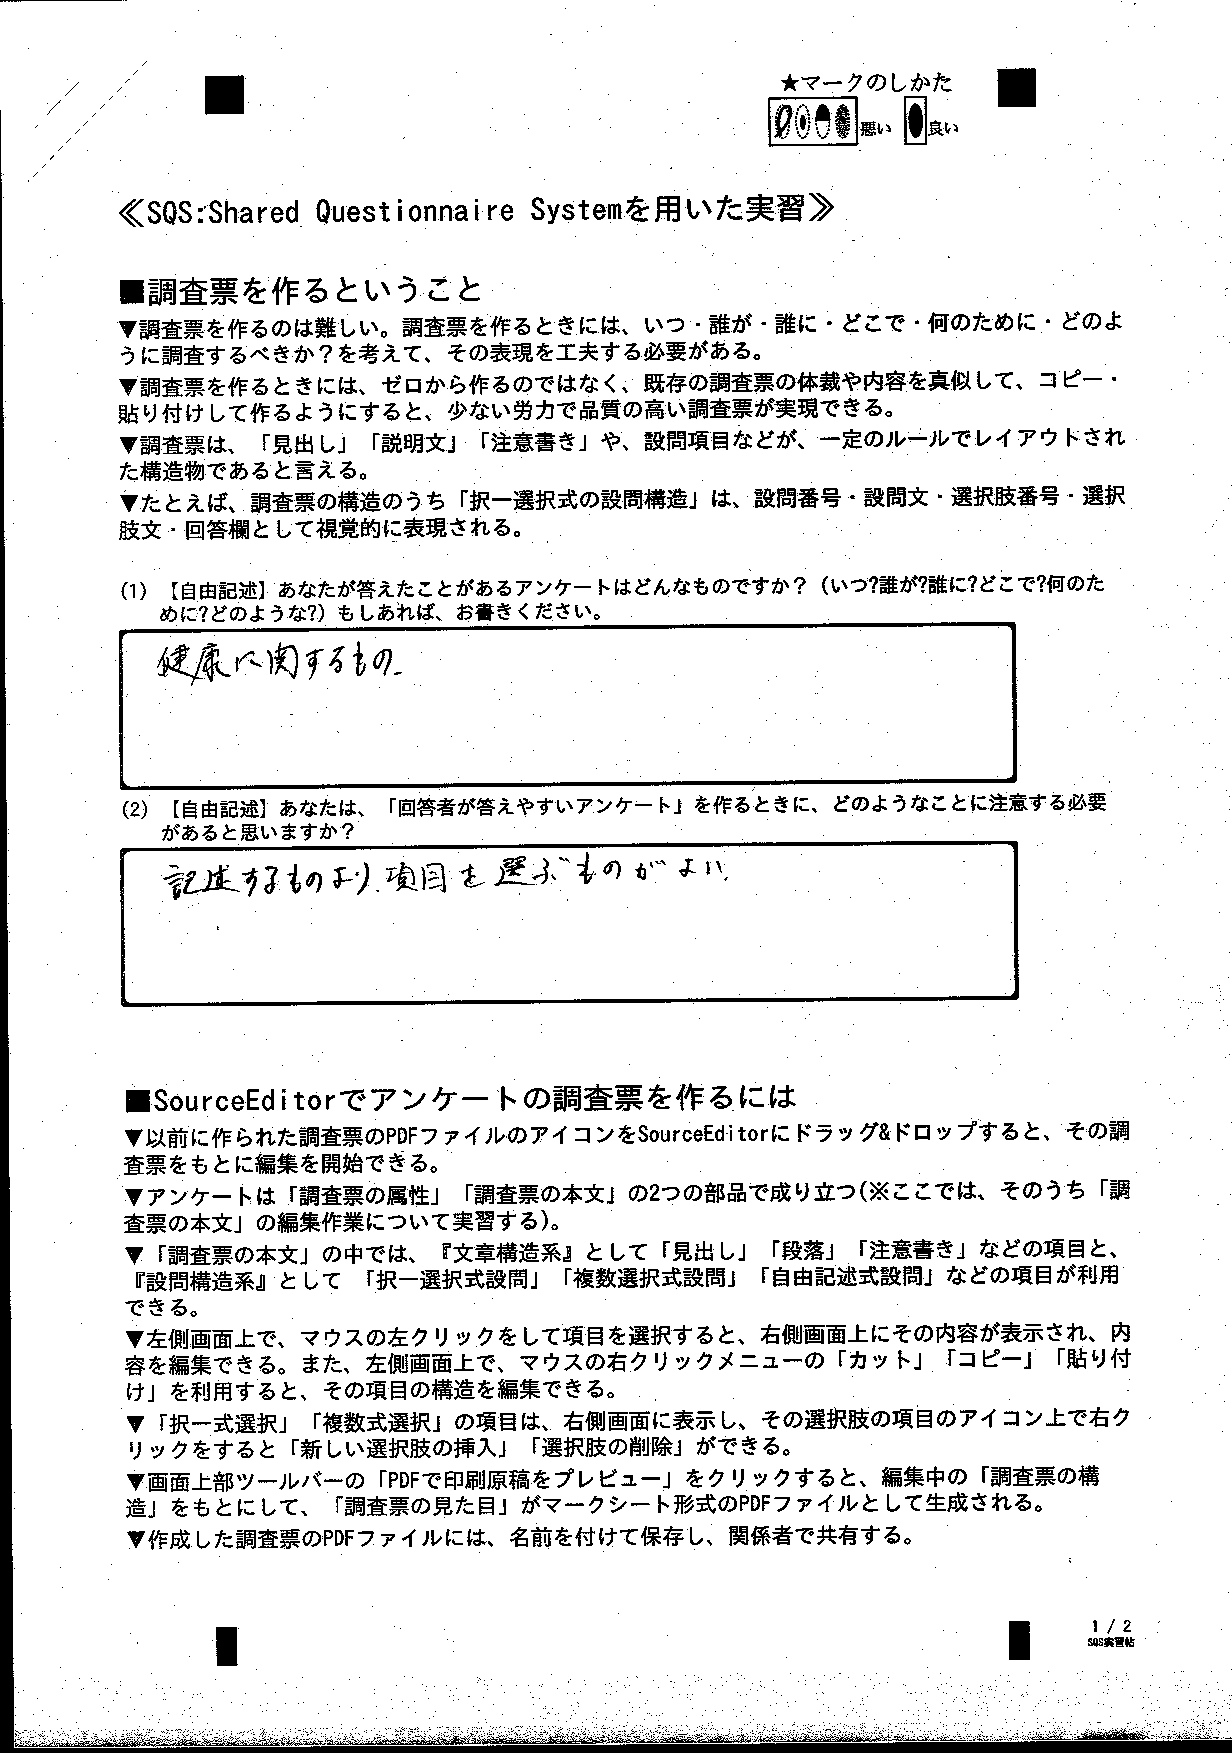 ★マークのしかた
悪い 良い
≪SQS:Shared Questionnaire Systemを用いた実習≫
■調査票を作るということ
▼調査票を作るのは難しい。調査票を作るときには、いつ・誰が・誰に・どこで・何のために・どのよ
うに調査するべきか？を考えて、その表現を工夫する必要がある。
▼調査票を作るときには、ゼロから作るのではなく、既存の調査票の体裁や内容を真似して、コピー・
貼り付けして作るようにすると、少ない労力で品質の高い調査票が実現できる。
▼調査票は、「見出し」「説明文」「注意書き」や、設問項目などが、一定のルールでレイアウトされ
た構造物であると言える。
▼たとえば、調査票の構造のうち「択一選択式の設問構造」は、設問番号・設問文・選択肢番号・選択
肢文・回答欄として視覚的に表現される。
(1) 【自由記述】あなたが答えたことがあるアンケートはどんなものですか？（いつ?誰が?誰に?どこで?何のた
めに?どのような?）もしあれば、お書きください。
健康に関するもの.
(2) 【自由記述】あなたは、「回答者が答えやすいアンケート」を作るときに、どのようなことに注意する必要
があると思いますか？
記述するものより、項目を選ぶものがよい.
■SourceEditorでアンケートの調査票を作るには
▼以前に作られた調査票のPDFファイルのアイコンをSourceEditorにドラッグ&ドロップすると、その調
査票をもとに編集を開始できる。
▼アンケートは「調査票の属性」「調査票の本文」の2つの部品で成り立つ(※ここでは、そのうち「調
査票の本文」の編集作業について実習する)。
▼「調査票の本文」の中では、『文章構造系』として「見出し」「段落」「注意書き」などの項目と、
『設問構造系』として 「択一選択式設問」「複数選択式設問」「自由記述式設問」などの項目が利用
できる。
▼左側画面上で、マウスの左クリックをして項目を選択すると、右側画面上にその内容が表示され、内
容を編集できる。また、左側画面上で、マウスの右クリックメニューの「カット」「コピー」「貼り付
け」を利用すると、その項目の構造を編集できる。
▼「択一式選択」「複数式選択」の項目は、右側画面に表示し、その選択肢の項目のアイコン上で右ク
リックをすると「新しい選択肢の挿入」「選択肢の削除」ができる。
▼画面上部ツールバーの「PDFで印刷原稿をプレビュー」をクリックすると、編集中の「調査票の構
造」をもとにして、「調査票の見た目」がマークシート形式のPDFファイルとして生成される。
▼作成した調査票のPDFファイルには、名前を付けて保存し、関係者で共有する。
1 / 2
SQS実習帖